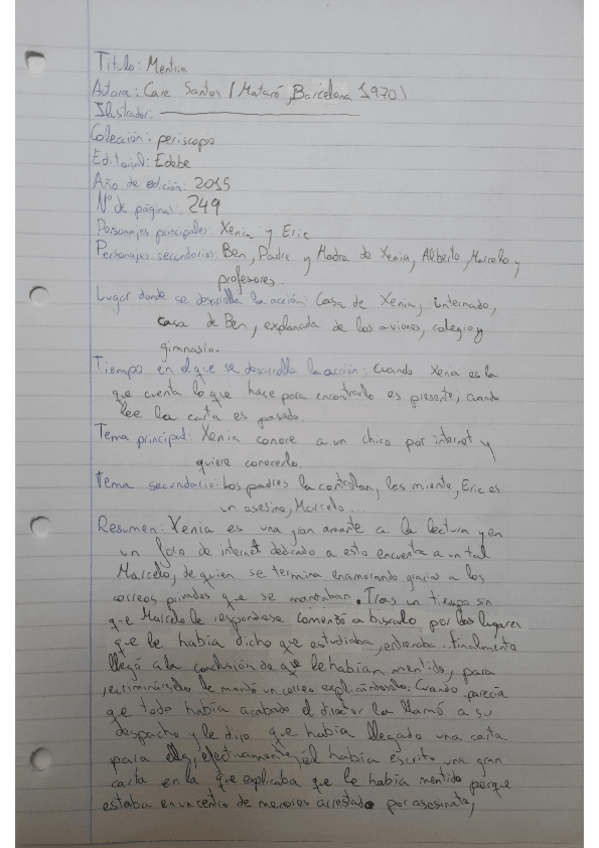 Titulo: Mentira
Autora: Care Santos (Mataró, Barcelona 1970)
Ilustrador:
Colección: periscopio
Editorial: Edebe
Año de edición: 2015
Nº de páginas: 249
Personajes principales: Xenia y Eric
Personajes secundarios: Ben, Padre y Madre de Xenia, Alberto, Marcelo y
profesores.
Lugar donde se desarrolla la acción: Casa de Xenia, internado,
casa de Ben, explanada de los aviones, colegio y
gimnasio.
Tiempo en el que se desarrolla la acción: Cuando Xenia es la
que cuenta lo que hace para encontrarlo es presente, cuando
lee la carta es pasado.
Tema principal: Xenia conoce a un chico por internet y
quiere conocerlo.
Tema secundario: Los padres la controlan, les miente, Eric es
un asesino, Marcelo...
Resumen: Xenia es una gran amante a la lectura y en
un foro de internet dedicado a esto encuenta a un tal
Marcelo, de quien se termina enamorando gracias a los
correos privados que se mandaban. Tras un tiempo sin
que Marcelo le respondiese comenzó a buscalo por los lugares
que le había dicho que estudiaba, entrenaba... Finalmente
llegó a la conclusión de que le habían mentido, para
recriminárselo le mandó un correo explicándoselo. Cuando parecía
que todo había acabado el director la llamó a su
despacho y le dijo que había llegado una carta
para ella, efectivamente, él había escrito una gran
carta en la que explicaba que le había mentido porque
estaba en un centro de menores arrestado por asesinato,